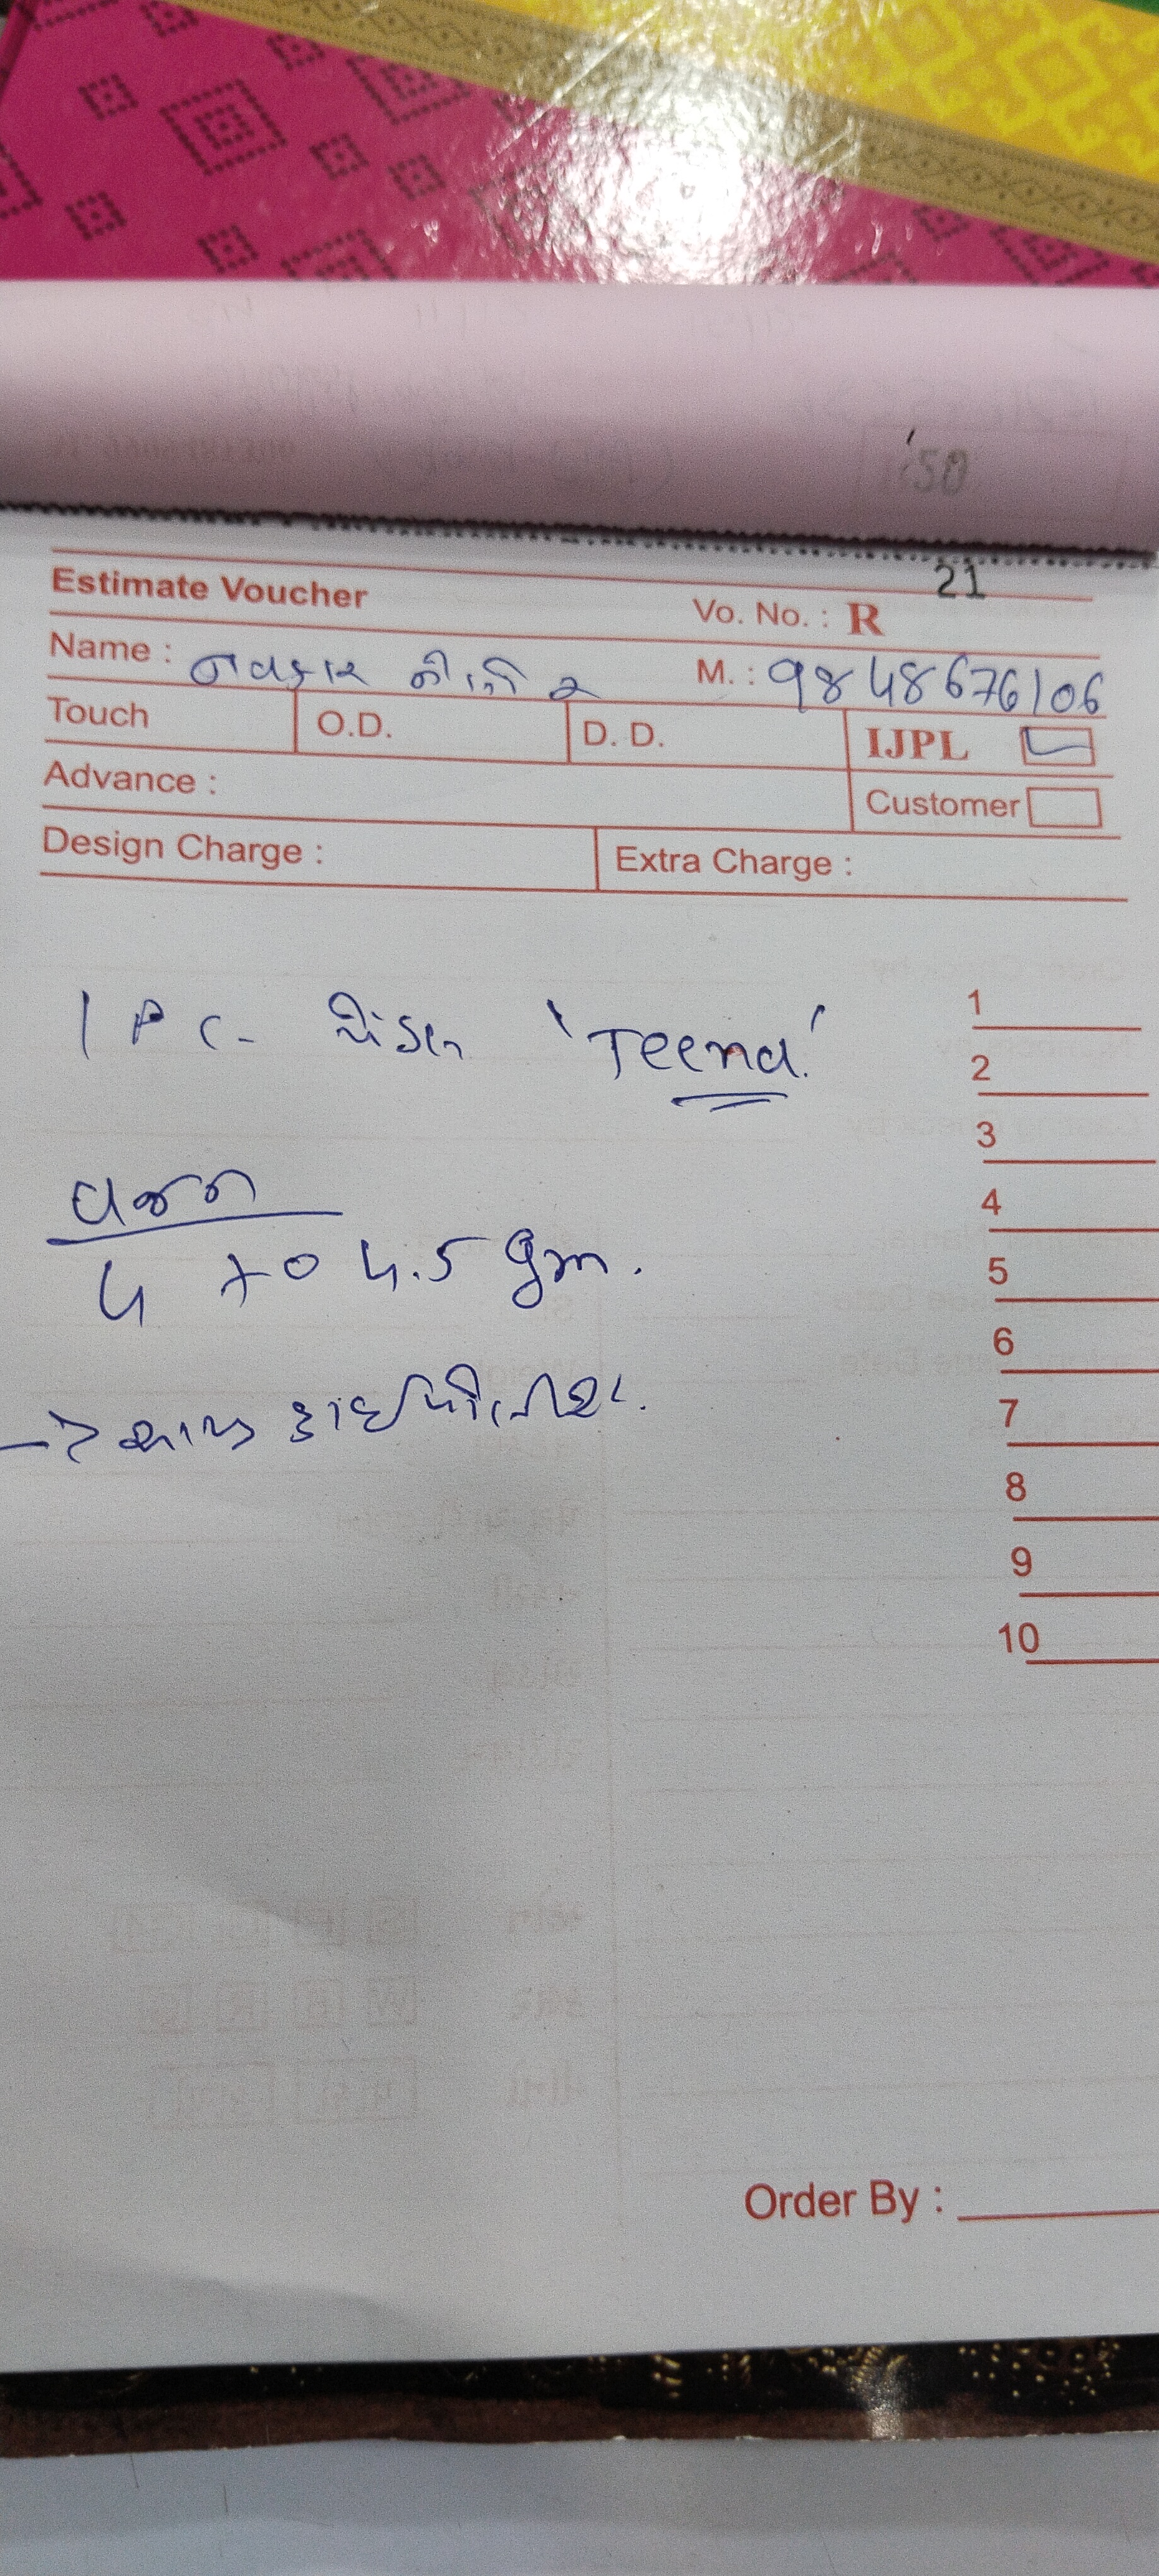 Estimate Voucher Vo. No. : R 21
Name : નવકાર M. : 9848676106
Touch O.D. D. D. IJPL
Advance : Customer
Design Charge : Extra Charge :
1 Pc. પેંડલ 'Teena'
વજન
4 to 4.5 gm.
→ સાવ હાઈપોલીશ.
1
2
3
4
5
6
7
8
9
10
Order By :